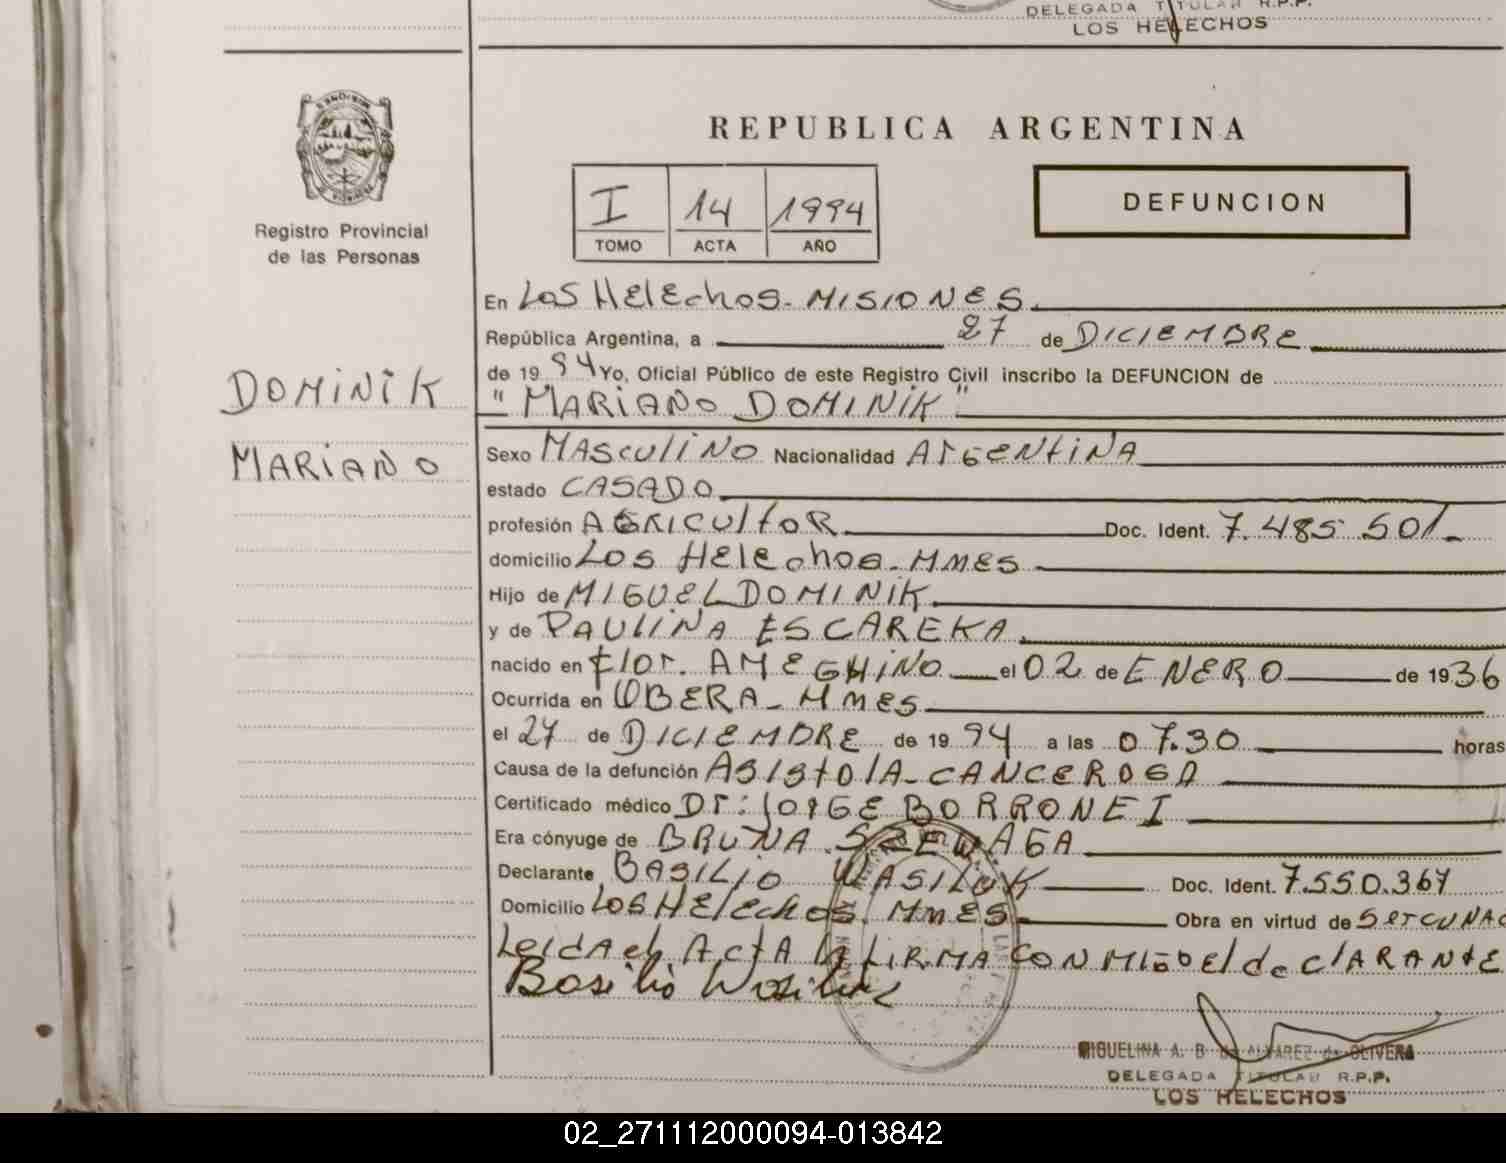 DELEGADA TITULAR R.P.P.
LOS HELECHOS
Registro Provincial
de las Personas
DOMINIK
MARIANO
REPUBLICA ARGENTINA
I 14 1994
TOMO ACTA AÑO
DEFUNCION
En Los Helechos - MISIONES
República Argentina, a 27 de DICIEMBRE
de 19 94 Yo, Oficial Público de este Registro Civil inscribo la DEFUNCION de
"MARIANO DOMINIK"
Sexo MASCULINO Nacionalidad ARGENTINA
estado CASADO
profesión AGRICULTOR Doc. Ident. 7.485.501
domicilio Los Helechos - MNES
Hijo de MIGUEL DOMINIK
y de PAULINA ESCAREKA
nacido en Flor. AMEGHINO el 02 de ENERO de 1936
Ocurrida en OBERA - MNES
el 27 de DICIEMBRE de 19 94 a las 07.30 horas
Causa de la defunción ASISTOLA - CANCEROSA
Certificado médico Dr: JORGE BORRONEI
Era cónyuge de BRUNA SZEWAGA
Declarante BASILIO WASILUK Doc. Ident. 7.550.367
Domicilio Los Helechos. MNES Obra en virtud de
Leida el ActA la FIRMA CON MIGO el declarante
Basilio Wasiluk
MIGUELINA A. B. de ALVAREZ de OLIVERA
DELEGADA TITULAR R.P.P.
LOS HELECHOS
02_271112000094-013842